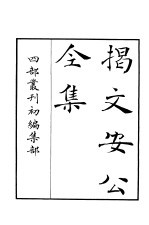 揭文安公
全集
四部叢刊初編集部